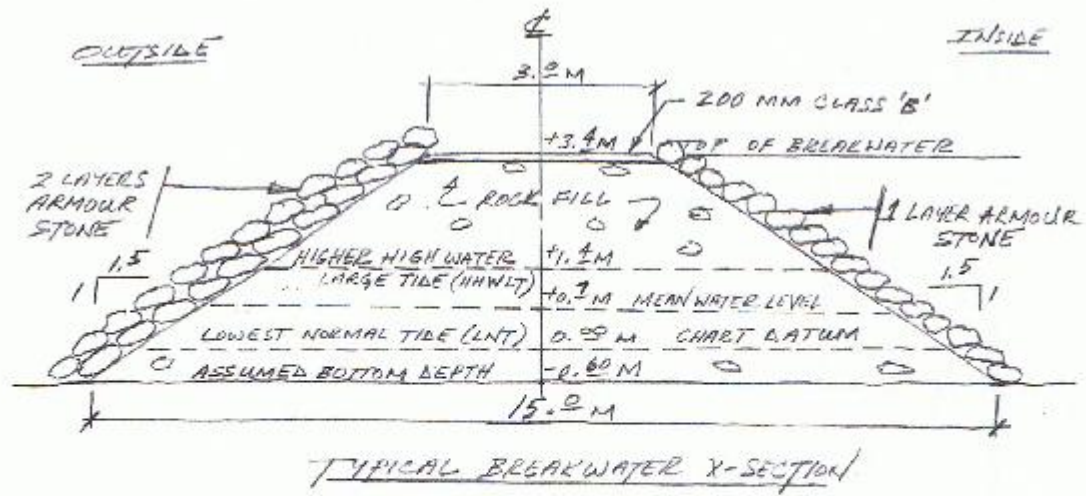 OUTSIDE
℄
INSIDE
3.0 M
200 MM CLASS 'B'
+3.4 M
TOP OF BREAKWATER
2 LAYERS
ARMOUR
STONE
ROCK FILL
1 LAYER ARMOUR
STONE
1.5
1
HIGHER HIGH WATER
LARGE TIDE (HHWLT)
+1.4 M
1.5
1
+0.7 M MEAN WATER LEVEL
LOWEST NORMAL TIDE (LNT) 0.00 M CHART DATUM
ASSUMED BOTTOM DEPTH -0.60 M
15.0 M
TYPICAL BREAKWATER X-SECTION